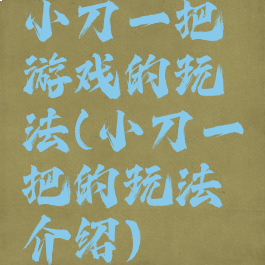 小刀一把
游戏的玩
法(小刀一
把的玩法
介绍)